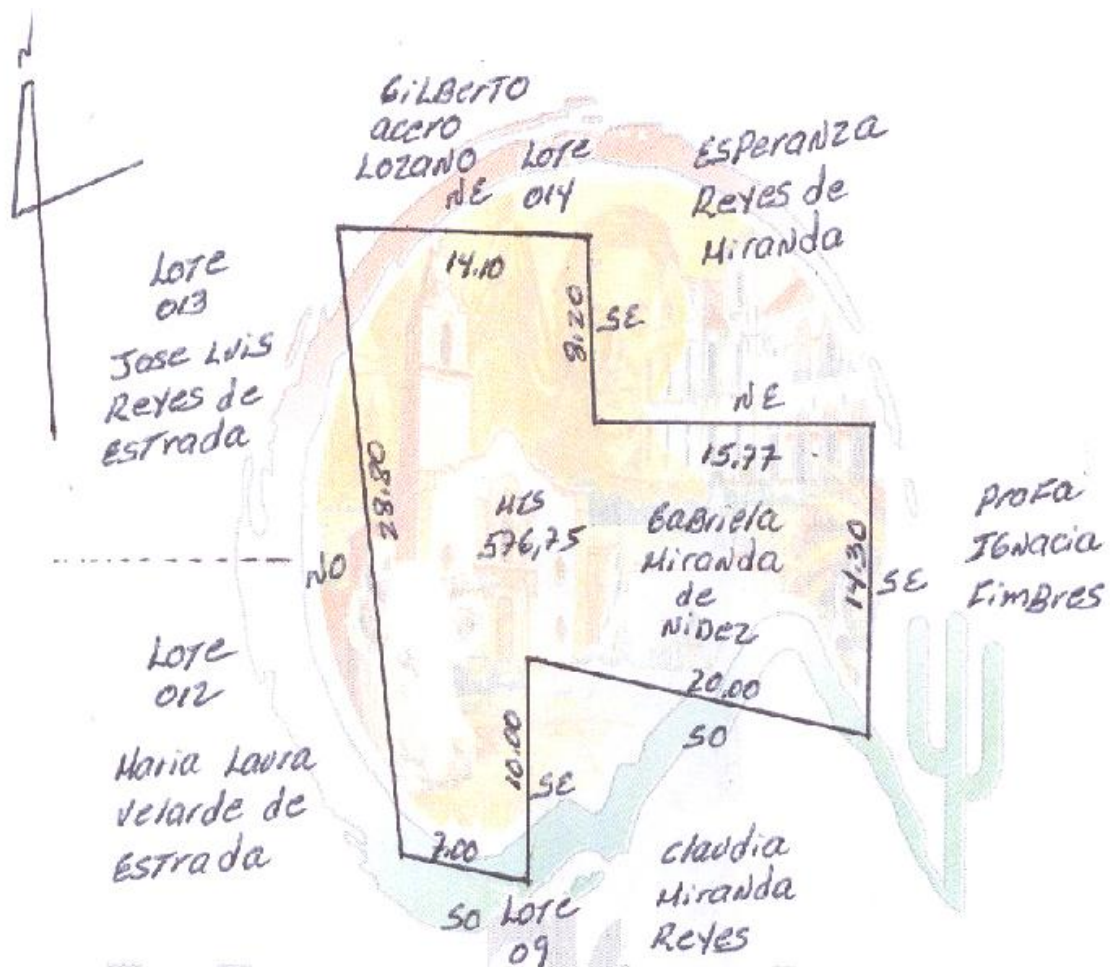 N
GiLBerTO
acero
LOZANO
NE
LoTe
014
ESPeraNZa
Reyes de
Miranda
14.10
8.20
SE
LoTe
013
Jose Luis
Reyes de
esTrada
NE
15.77
28.80
NO
MTS
576,75
GaBriela
Miranda
de
NiDez
14.30
SE
Profa
IGNacia
FimBres
LoTe
012
Maria Laura
Velarde de
ESTrada
20.00
SO
10.00
SE
7.00
SO
LoTe
09
claudia
Miranda
Reyes